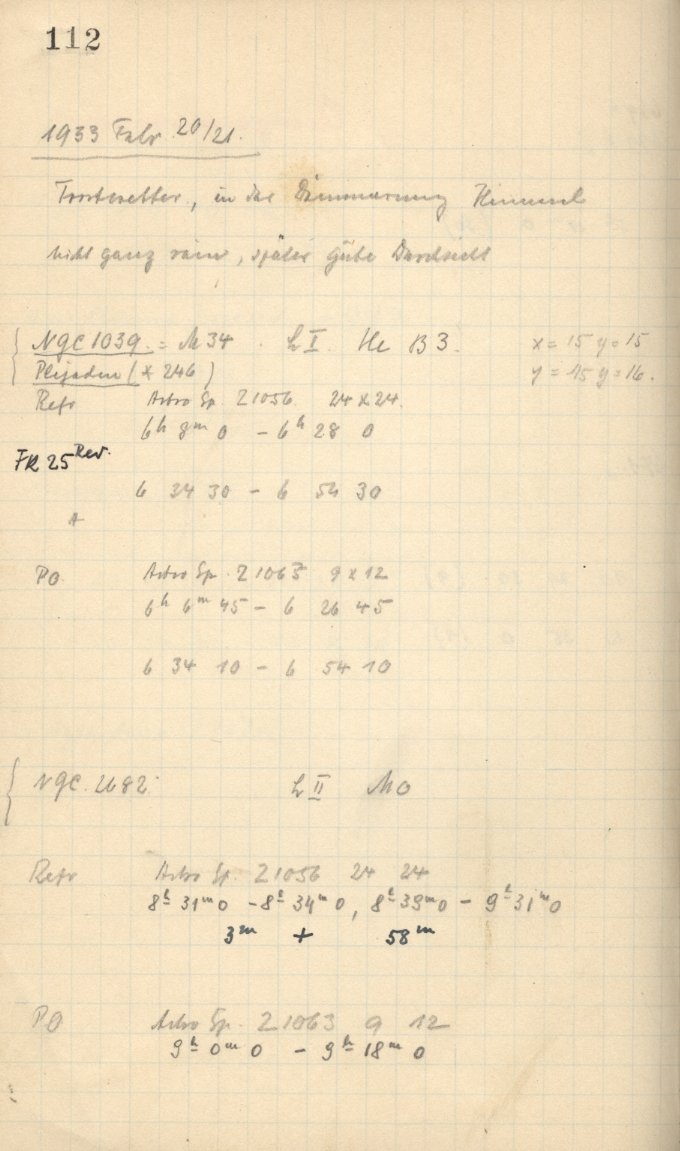 112
1933 Febr 20/21.
Frostwetter, in der Dämmerung Himmel
nicht ganz rein, später gute Durchsicht
NGC 1039. = M 34 . L II. He B 3. x = 15 y = 15
Plejaden (x 246) y = 15 y = 16.
Refr Astro Sp. 21056. 24 x 24.
6h 8m 0 - 6h 28 0
FR 25 Rev.
6 34 30 - 6 54 30
A
PO Astro Sp. 21063 9 x 12
6h 6m 45 - 6 26 45
6 34 10 - 6 54 10
NGC. 2682 L II Mo
Refr Astro Sp. 21056 24 24
8h 31m 0 - 8h 34m 0, 8h 33m 0 - 9h 31m 0
3m + 58m
PO Astro Sp. 21063 9 12
9h 0m 0 - 9h 18m 0